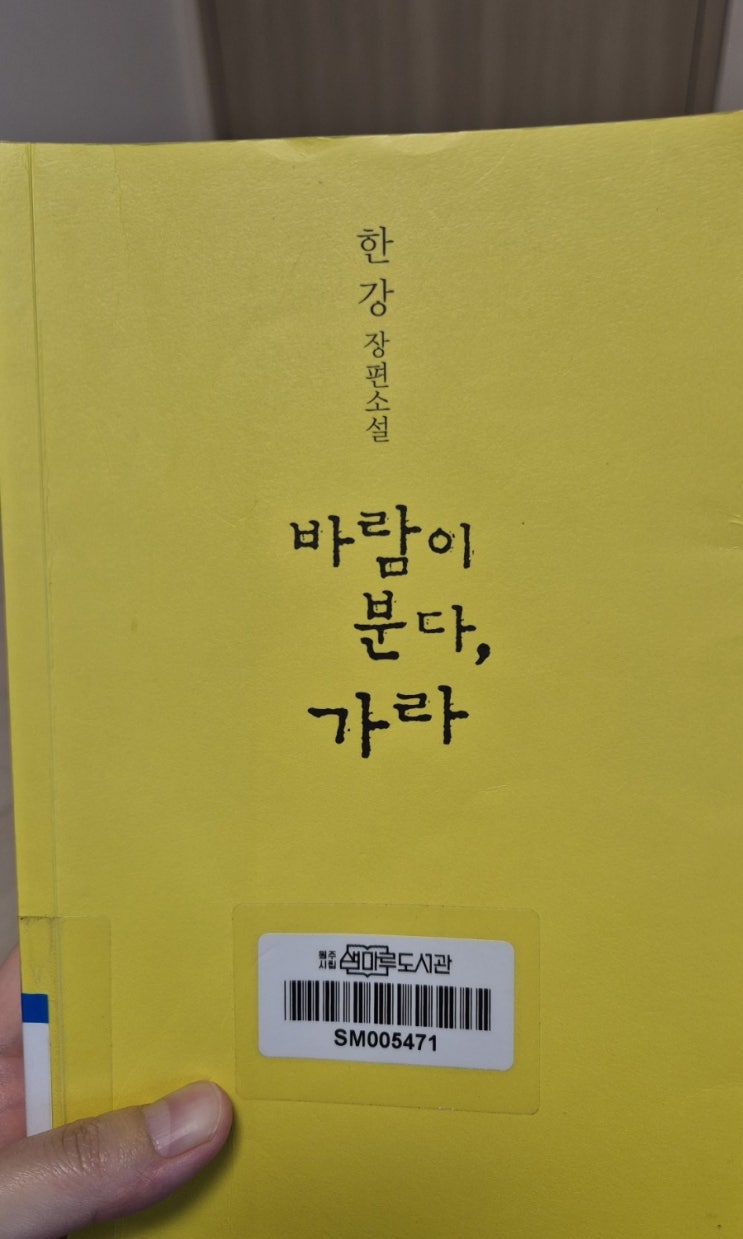 한강 장편소설
바람이
분다,
가라
원주
시립 샘마루도서관
SM005471